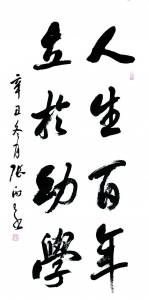 人生百年
立於幼學
辛丑冬月張